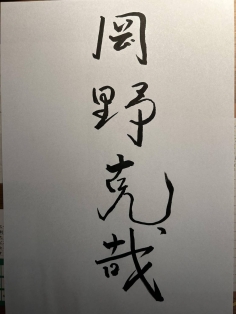 岡野克哉